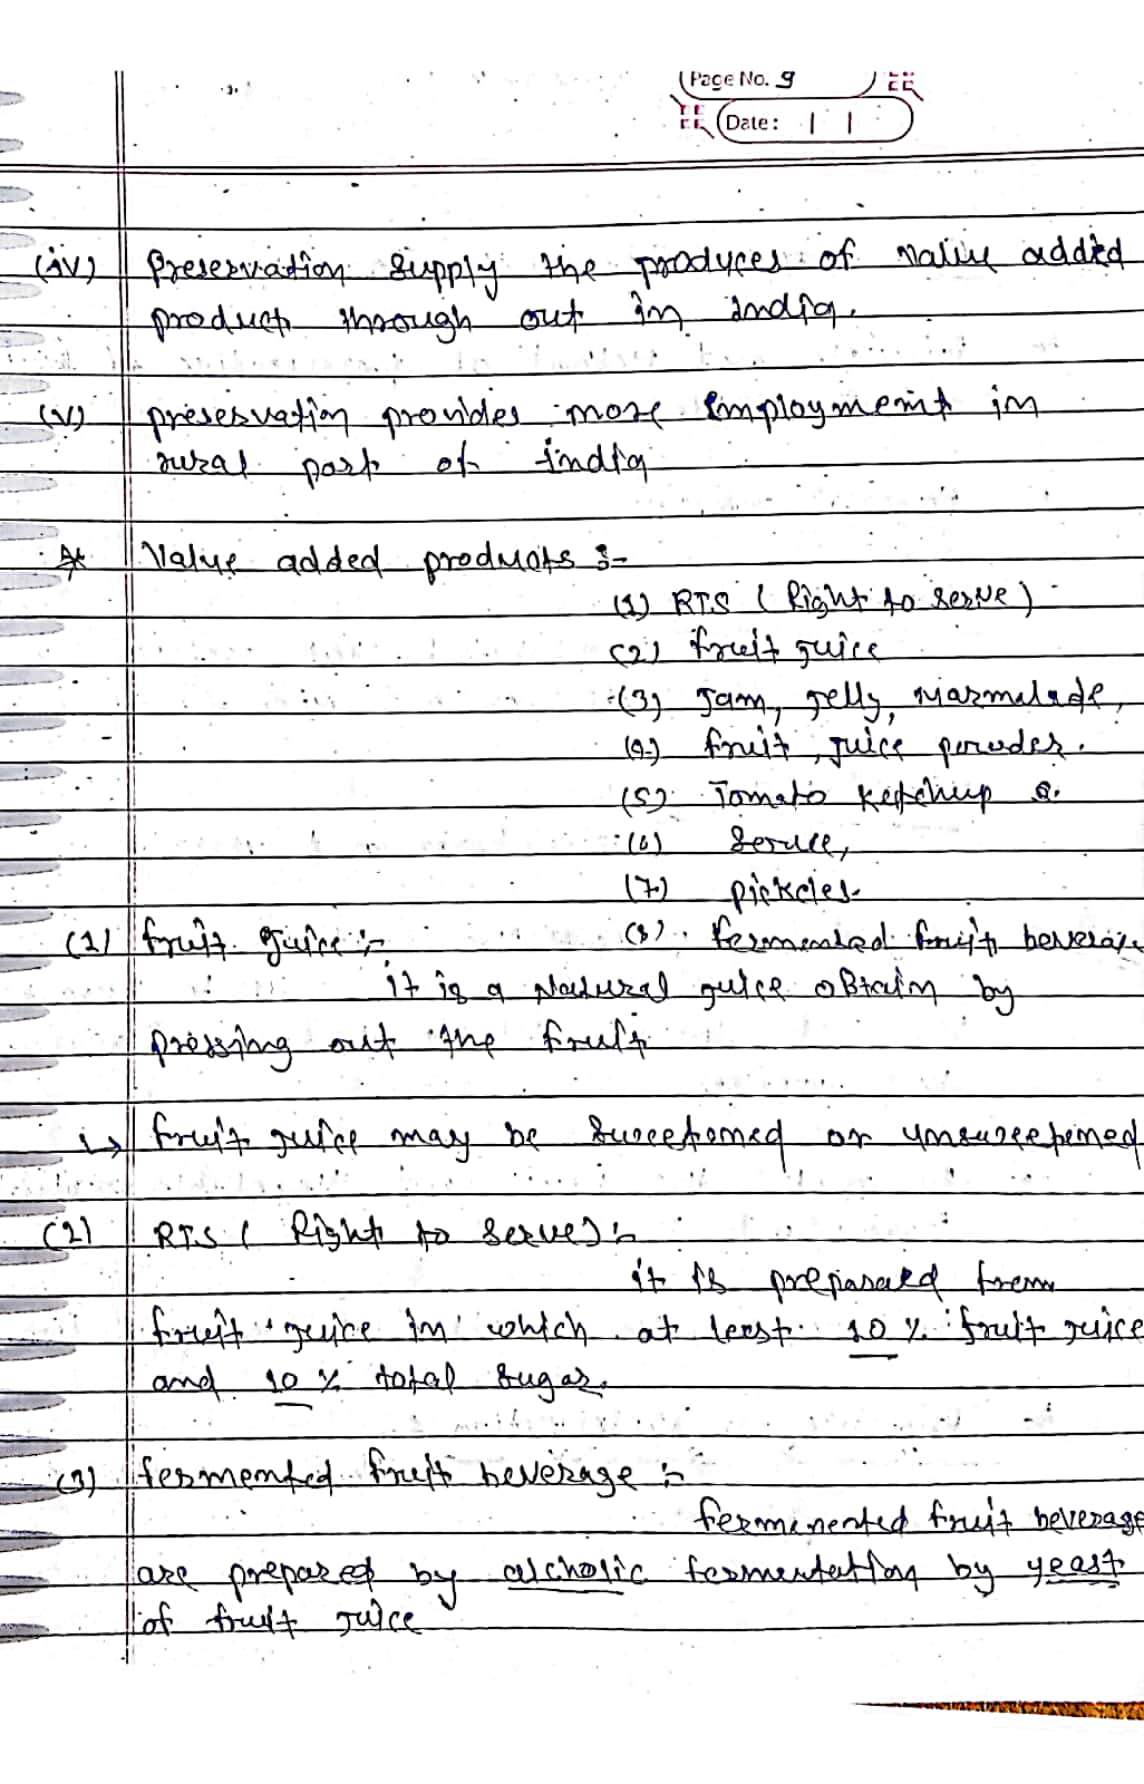 Page No. 9
Date: | |
(iv) Preservation supply the produces of value added
product through out in india.
(v) preservation provides more employment in
rural part of india
* Value added products :-
(1) RTS ( Right to serve)
(2) fruit juice
(3) Jam, jelly, marmalade,
(4) fruit, juice powder.
(5) Tomato ketchup &
(6)
(7) pickcles
(1) fruit juice :-
(8) fermented fruit beverage
it is a Natural juice oBtain by
pressing out the fruit
fruit juice may be sweetened or unsweetened
(2) RTS ( Right to serve) :-
it is prepared from
fruit juice in which at least 10 % fruit juice
and 10 % total sugar.
(3) fermented fruit beverage :-
fermenented fruit beverage
are prepared by alcholic fermentation by yeast
of fruit juice